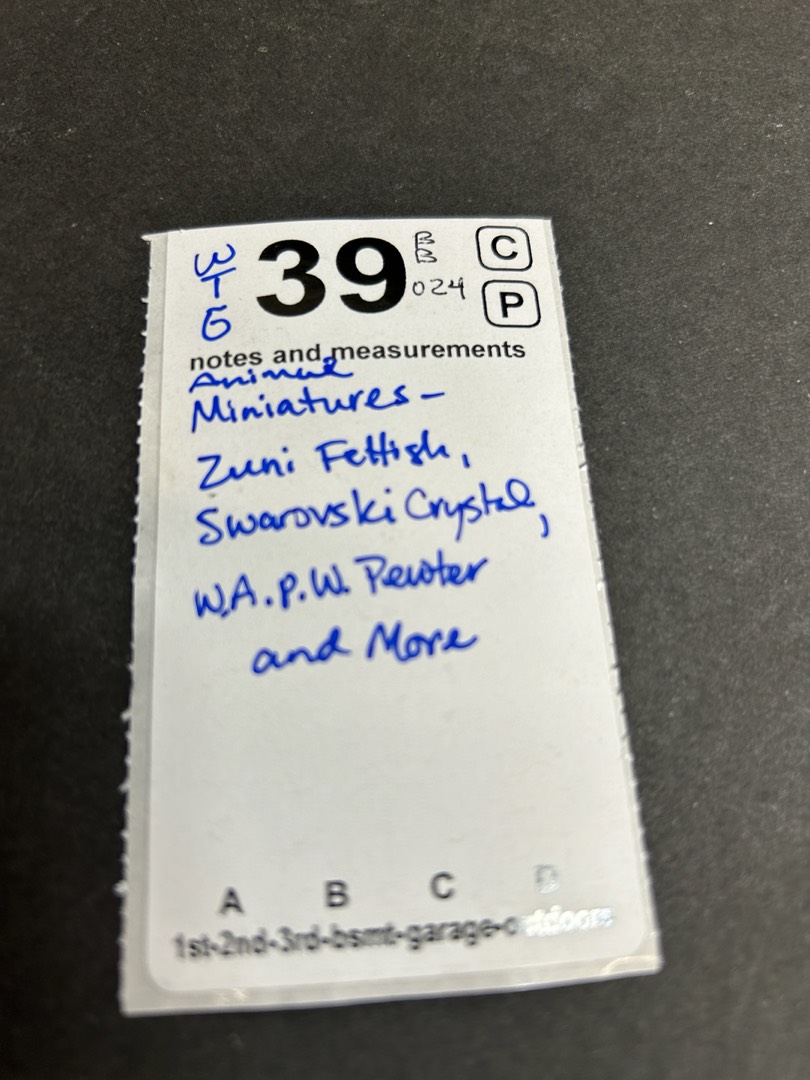 W
T
G
39
EB
024
C
P
notes and measurements
Animal
Miniatures-
Zuni Fettish,
Swarovski Crystal,
W.A.P.W. Pewter
and More
A B C D
1st-2nd-3rd-bsmt-garage-outdoors